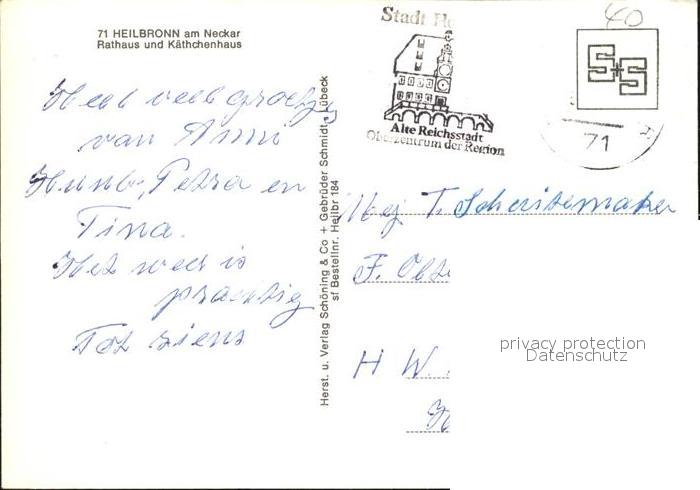 71 HEILBRONN am Neckar
Rathaus und Käthchenhaus
Heel veel groetjes
van Anni
Huub, Petra en
Tina.
Het weer is
prachtig
Tot ziens
Herst. u. Verlag Schöning & Co + Gebrüder Schmidt, Lübeck
sf Bestellnr. Heilbr 184
Stadt He
Alte Reichsstadt
Oberzentrum der Region
40
S+S
71
Mej T. Scheitemaker
F.
H W.
privacy protection
Datenschutz